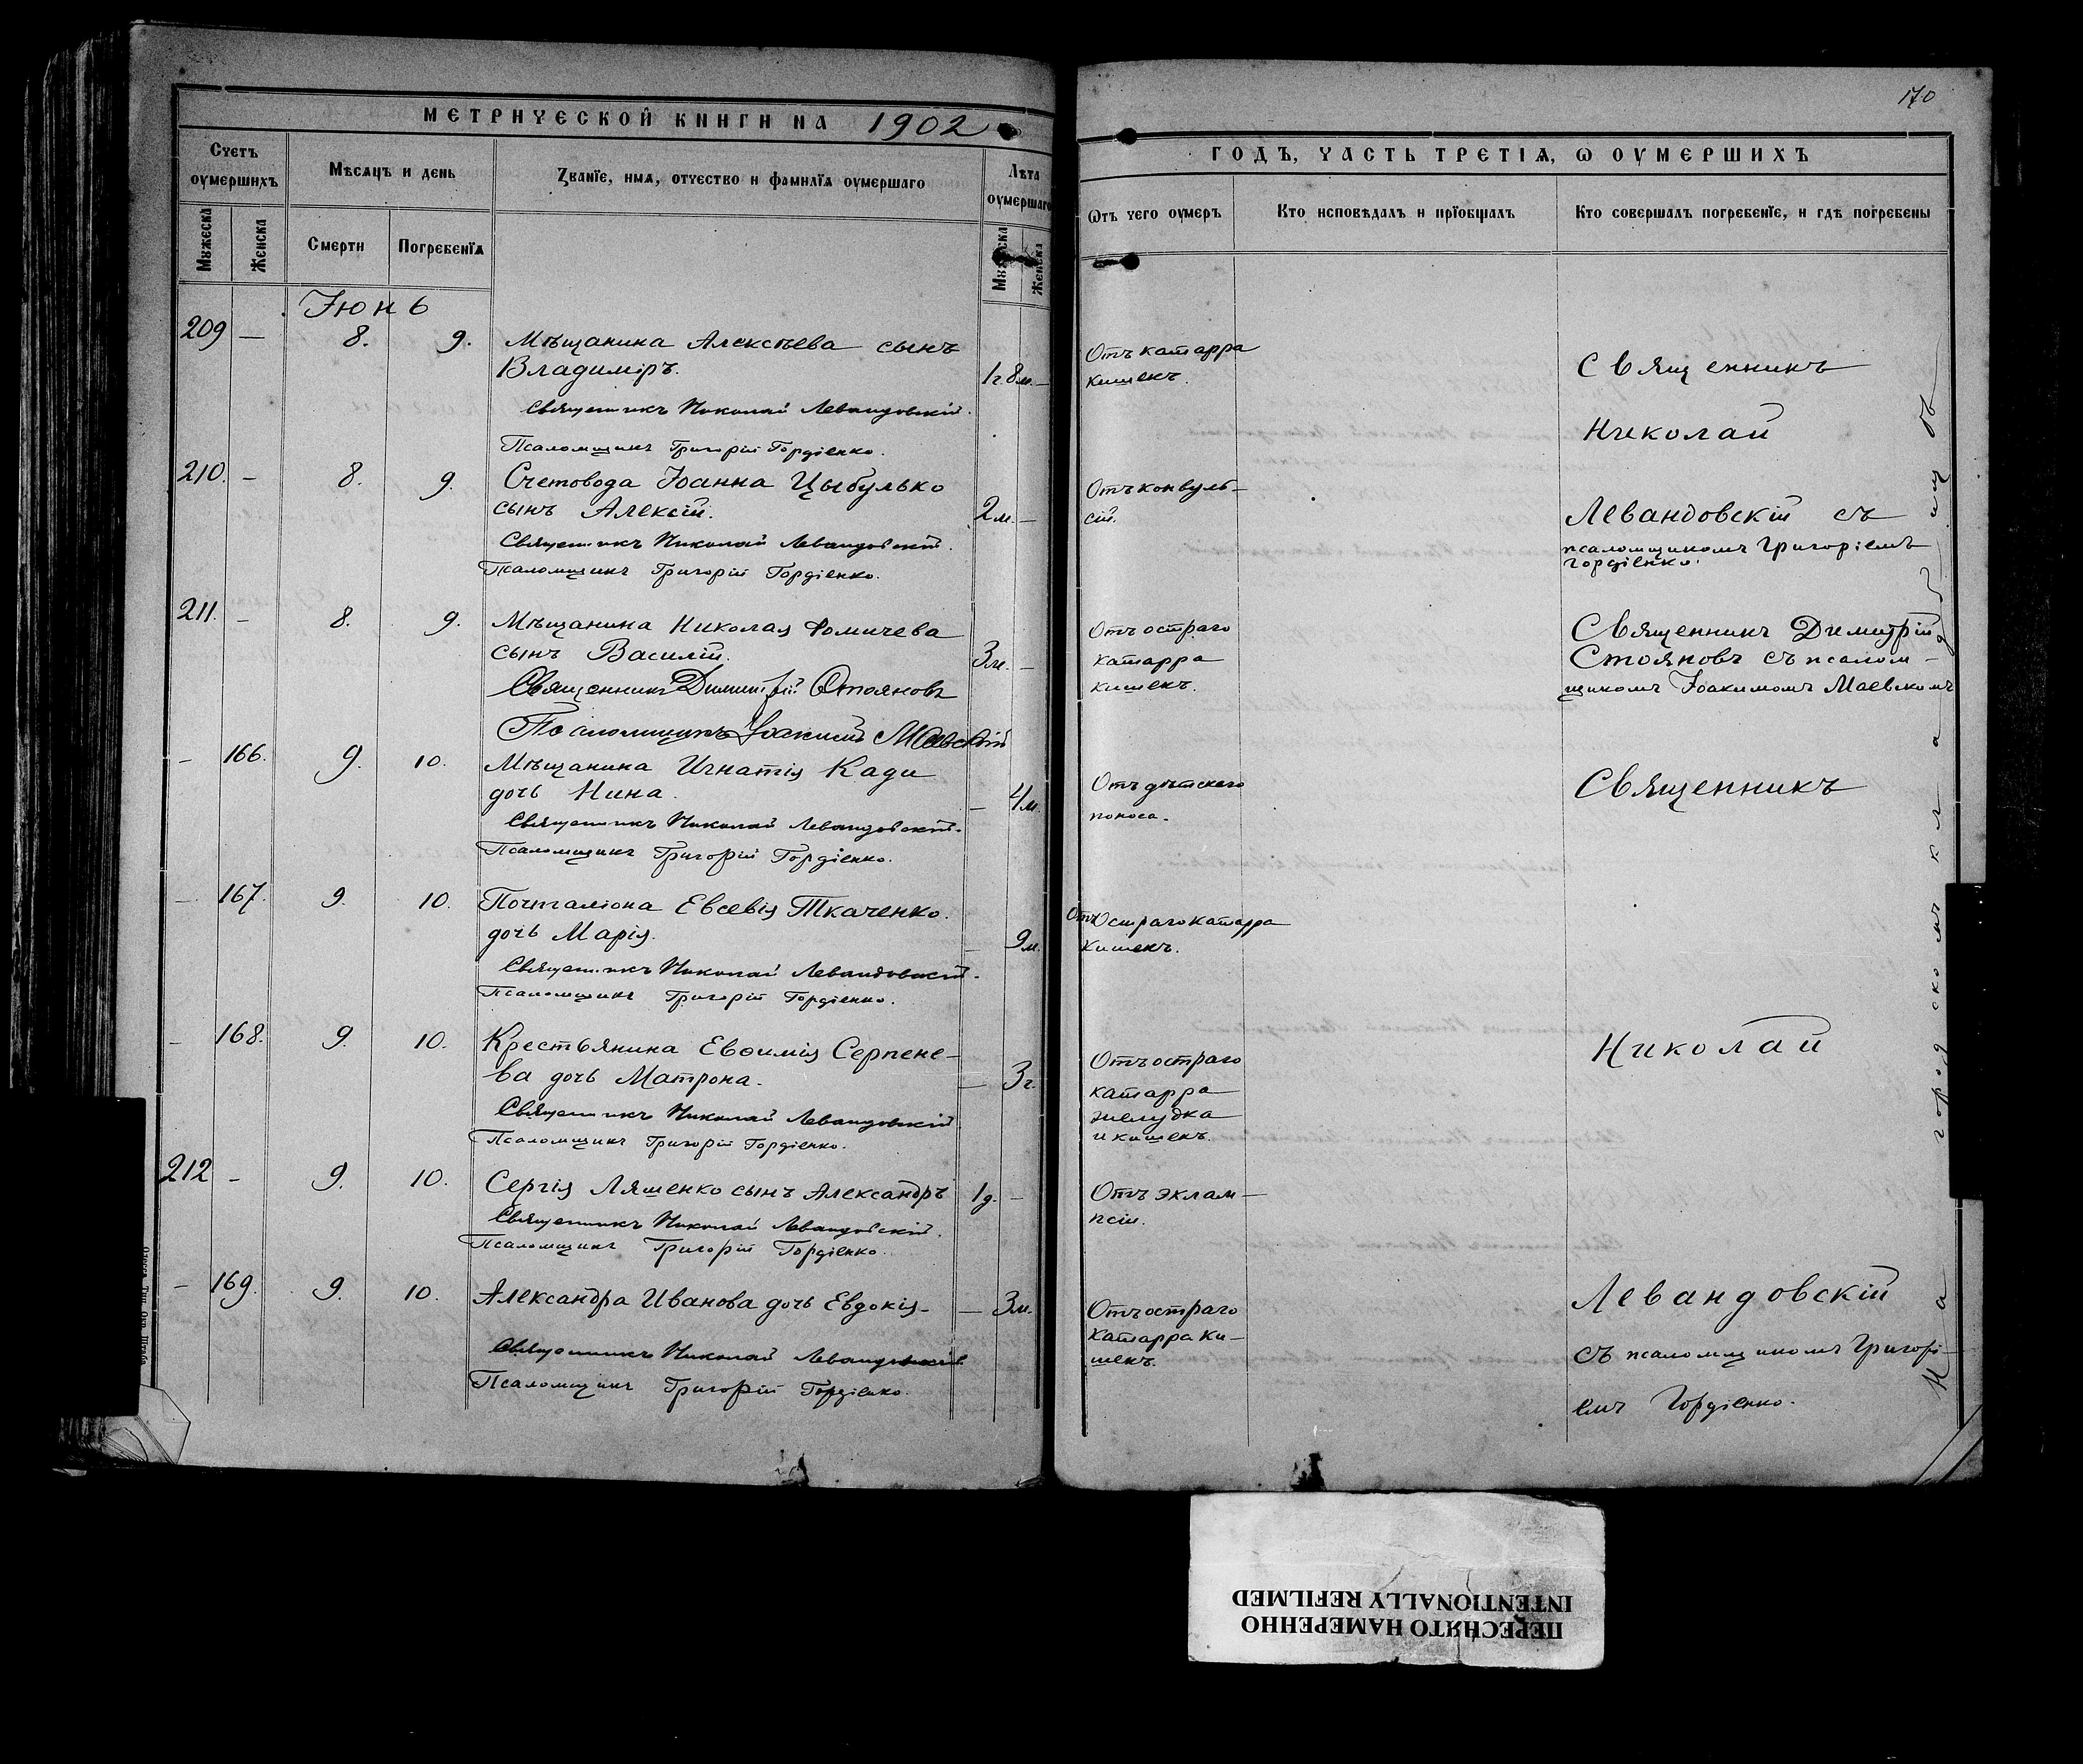 МЕТРИЧЕСКОЙ КНИГИ НА 1902
Счетъ оумершихъ
Мѣсяцъ и день
Званїе, имя, отчество и фамилїя оумершаго
Лѣта оумершаго
Мужеска
Женска
Смерти
Погребенїя
Мужеска
Женска
Іюнь
209 — 8. 9. Мѣщанина Алексѣева сынъ
Владиміръ. 1г8м. —
Священникъ Николай Левандовскій.
Псаломщикъ Григорій Гордіенко.
210. — 8. 9. Счетовода Іоанна Цыбулько
сынъ Алексій. 2м. —
Священникъ Николай Левандовскій.
Псаломщикъ Григорій Гордіенко.
211. — 8. 9. Мѣщанина Николая Фомичева
сынъ Василій. 3м. —
Священникъ Димитрій Стояновъ
Псаломщикъ Іоакимъ Маевскій
— 166. 9. 10. Мѣщанина Игнатія Кади
дочь Нина. — 4м.
Священникъ Николай Левандовскій.
Псаломщикъ Григорій Гордіенко.
— 167. 9. 10. Почталіона Евсевія Ткаченко.
дочь Марія. — 9м.
Священникъ Николай Левандовскій.
Псаломщикъ Григорій Гордіенко.
— 168. 9. 10. Крестьянина Евѳимія Серпене-
ва дочь Матрона. — 3г.
Священникъ Николай Левандовскій
Псаломщикъ Григорій Гордіенко.
212 — 9. 10. Сергія Ляшенко сынъ Александръ 1д. —
Священникъ Николай Левандовскій.
Псаломщикъ Григорій Гордіенко.
— 169. 9. 10. Александра Иванова дочь Евдокія — 3м.
Священникъ Николай Левандовскій
Псаломщикъ Григорій Гордіенко.
170
ГОДЪ, ЧАСТЬ ТРЕТІЯ, Ѡ ОУМЕРШИХЪ
Ѡтъ чего оумеръ
Кто исповѣдалъ и прїобщалъ
Кто совершалъ погребенїе, и гдѣ погребены
Отъ катарра
кишекъ.
Священникъ
Николай
Отъ конвуль-
сій.
Левандовскій съ
псаломщикомъ Григоріемъ
Гордіенко.
Отъ остраго
катарра
кишекъ.
Священникъ Димитрій
Стояновъ съ псалом-
щикомъ Іоакимомъ Маевскимъ
Отъ дѣтскаго
поноса.
Священникъ
Отъ Остраго катарра
кишекъ.
Отъ остраго
катарра
желудка
и кишекъ.
Николай
Отъ эклам-
псіи.
Отъ остраго
катарра ки-
шекъ.
Левандовскій
съ псаломщикомъ Григорі-
емъ Гордіенко.
На городскомъ кладбищѣ
ПЕРЕСНЯТО НАМЕРЕННО
INTENTIONALLY REFILMED